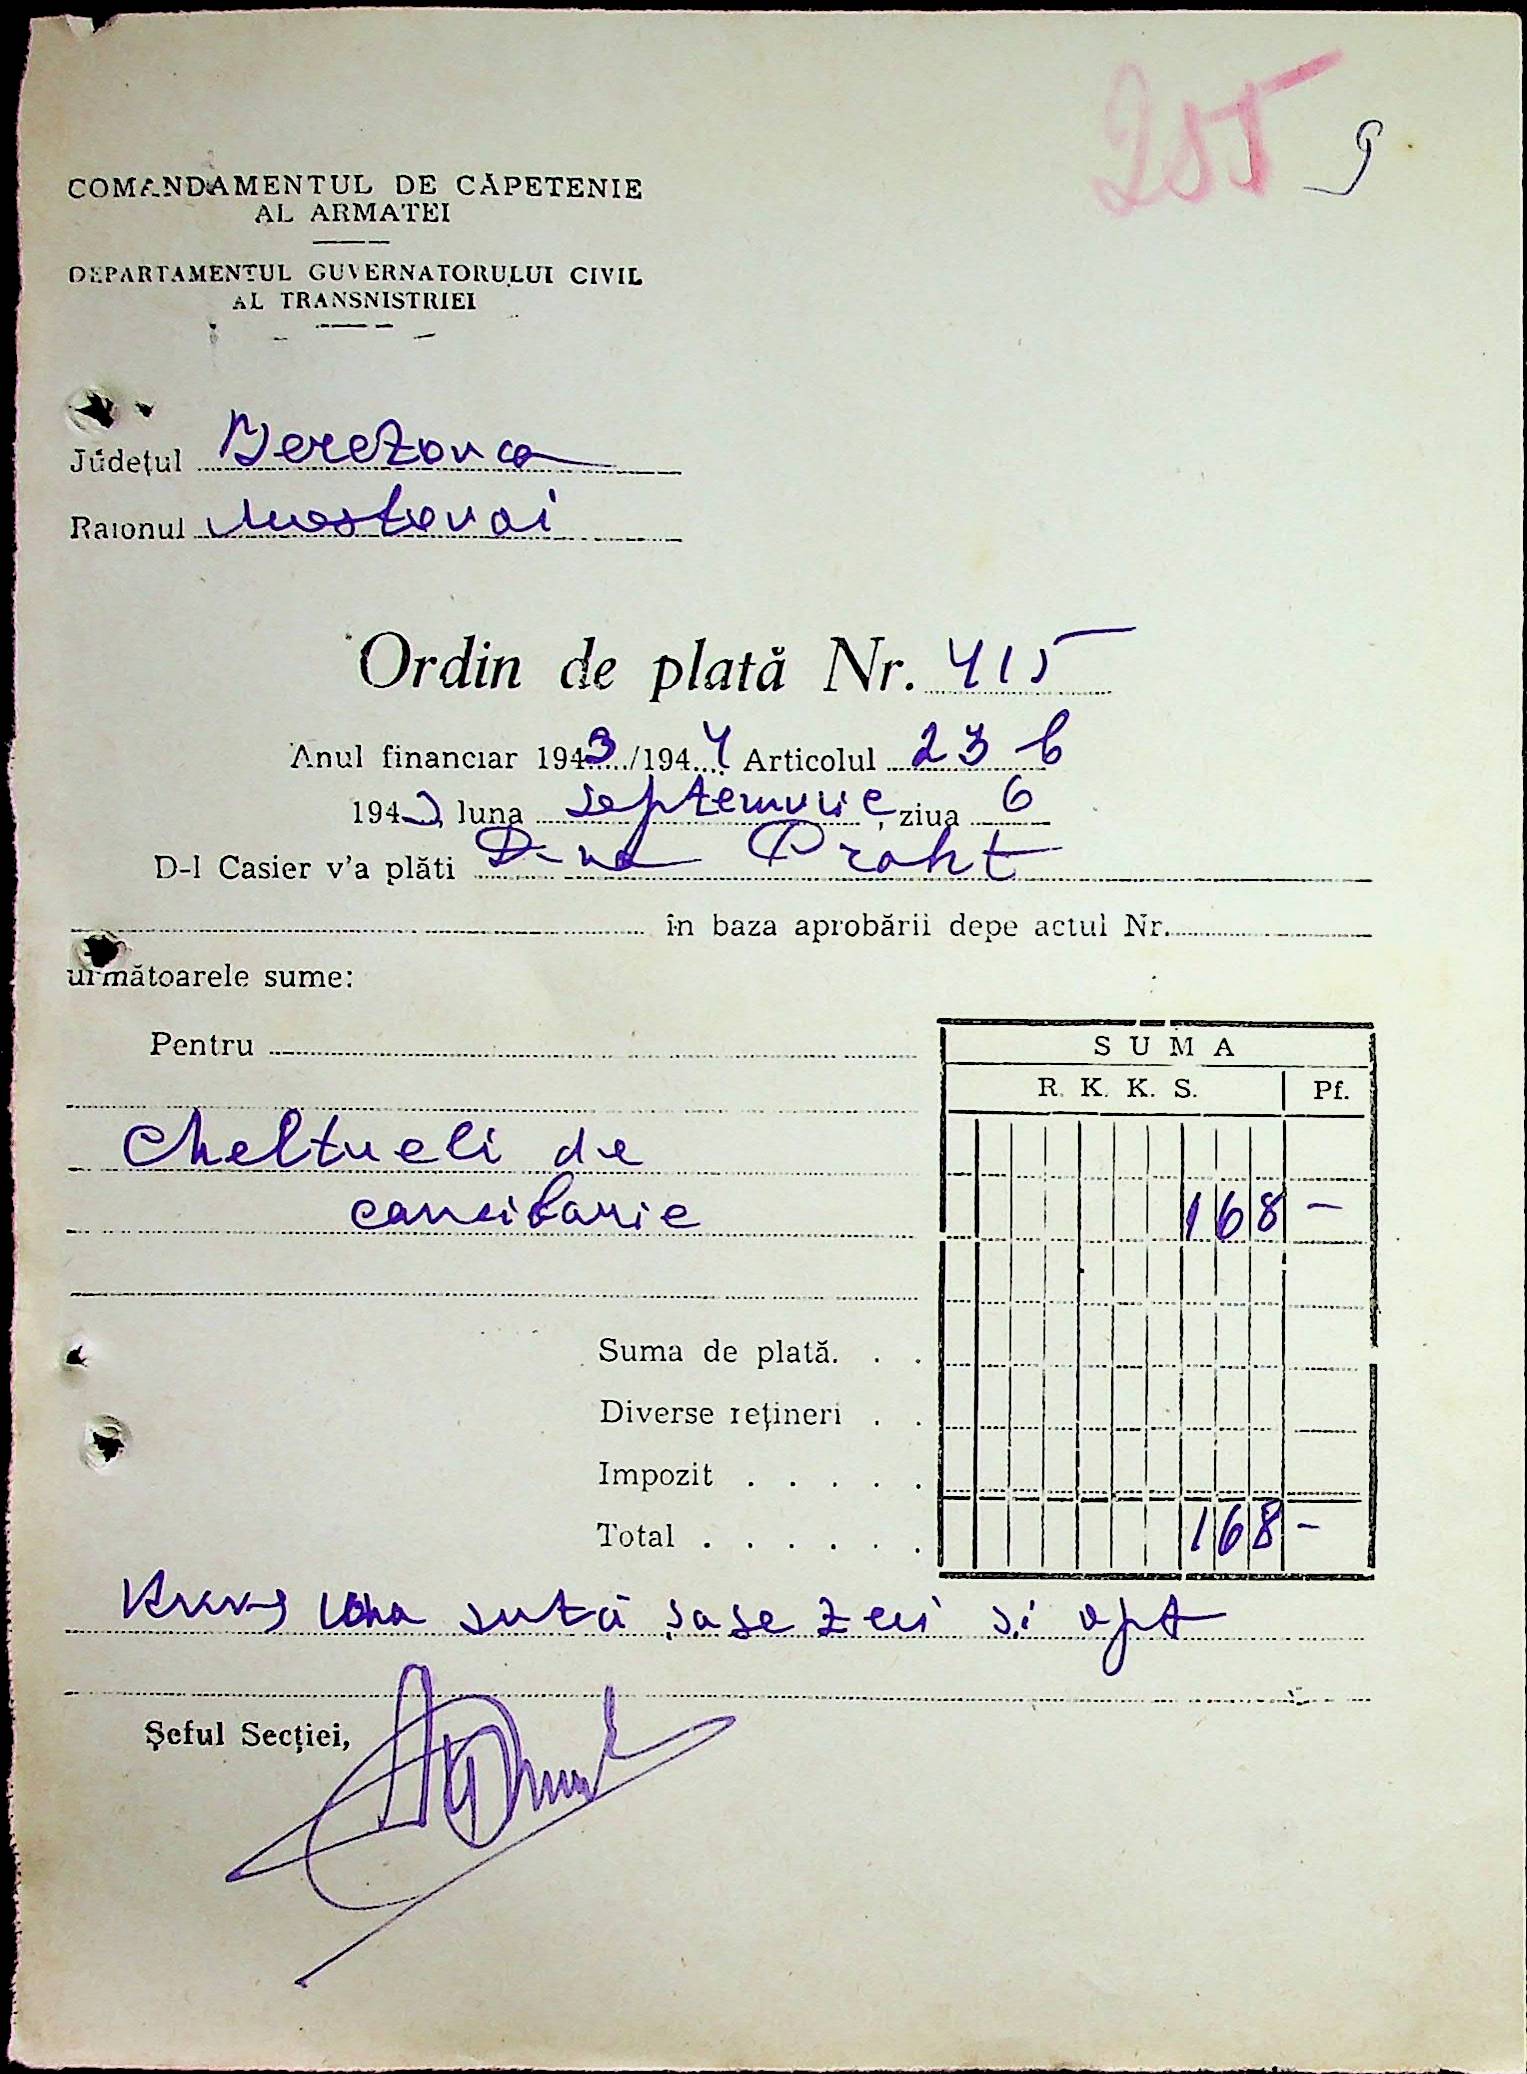 255 9
COMANDAMENTUL DE CĂPETENIE
AL ARMATEI
DEPARTAMENTUL GUVERNATORULUI CIVIL
AL TRANSNISTRIEI
Județul Berezovca
Raionul Mostovoi
Ordin de plată Nr. 415
Anul financiar 1943/1944 Articolul 23 b
1943, luna Septemvrie, ziua 6
D-l Casier v'a plăti D-na Praht
în baza aprobării depe actul Nr.
următoarele sume:
Pentru
SUMA
R. K. K. S. Pf.
Cheltueli de
cancilarie 168 –
Suma de plată. . .
Diverse rețineri . .
Impozit . . . . .
Total . . . . . . 168 –
una sută șase zeci și opt
Șeful Secției,